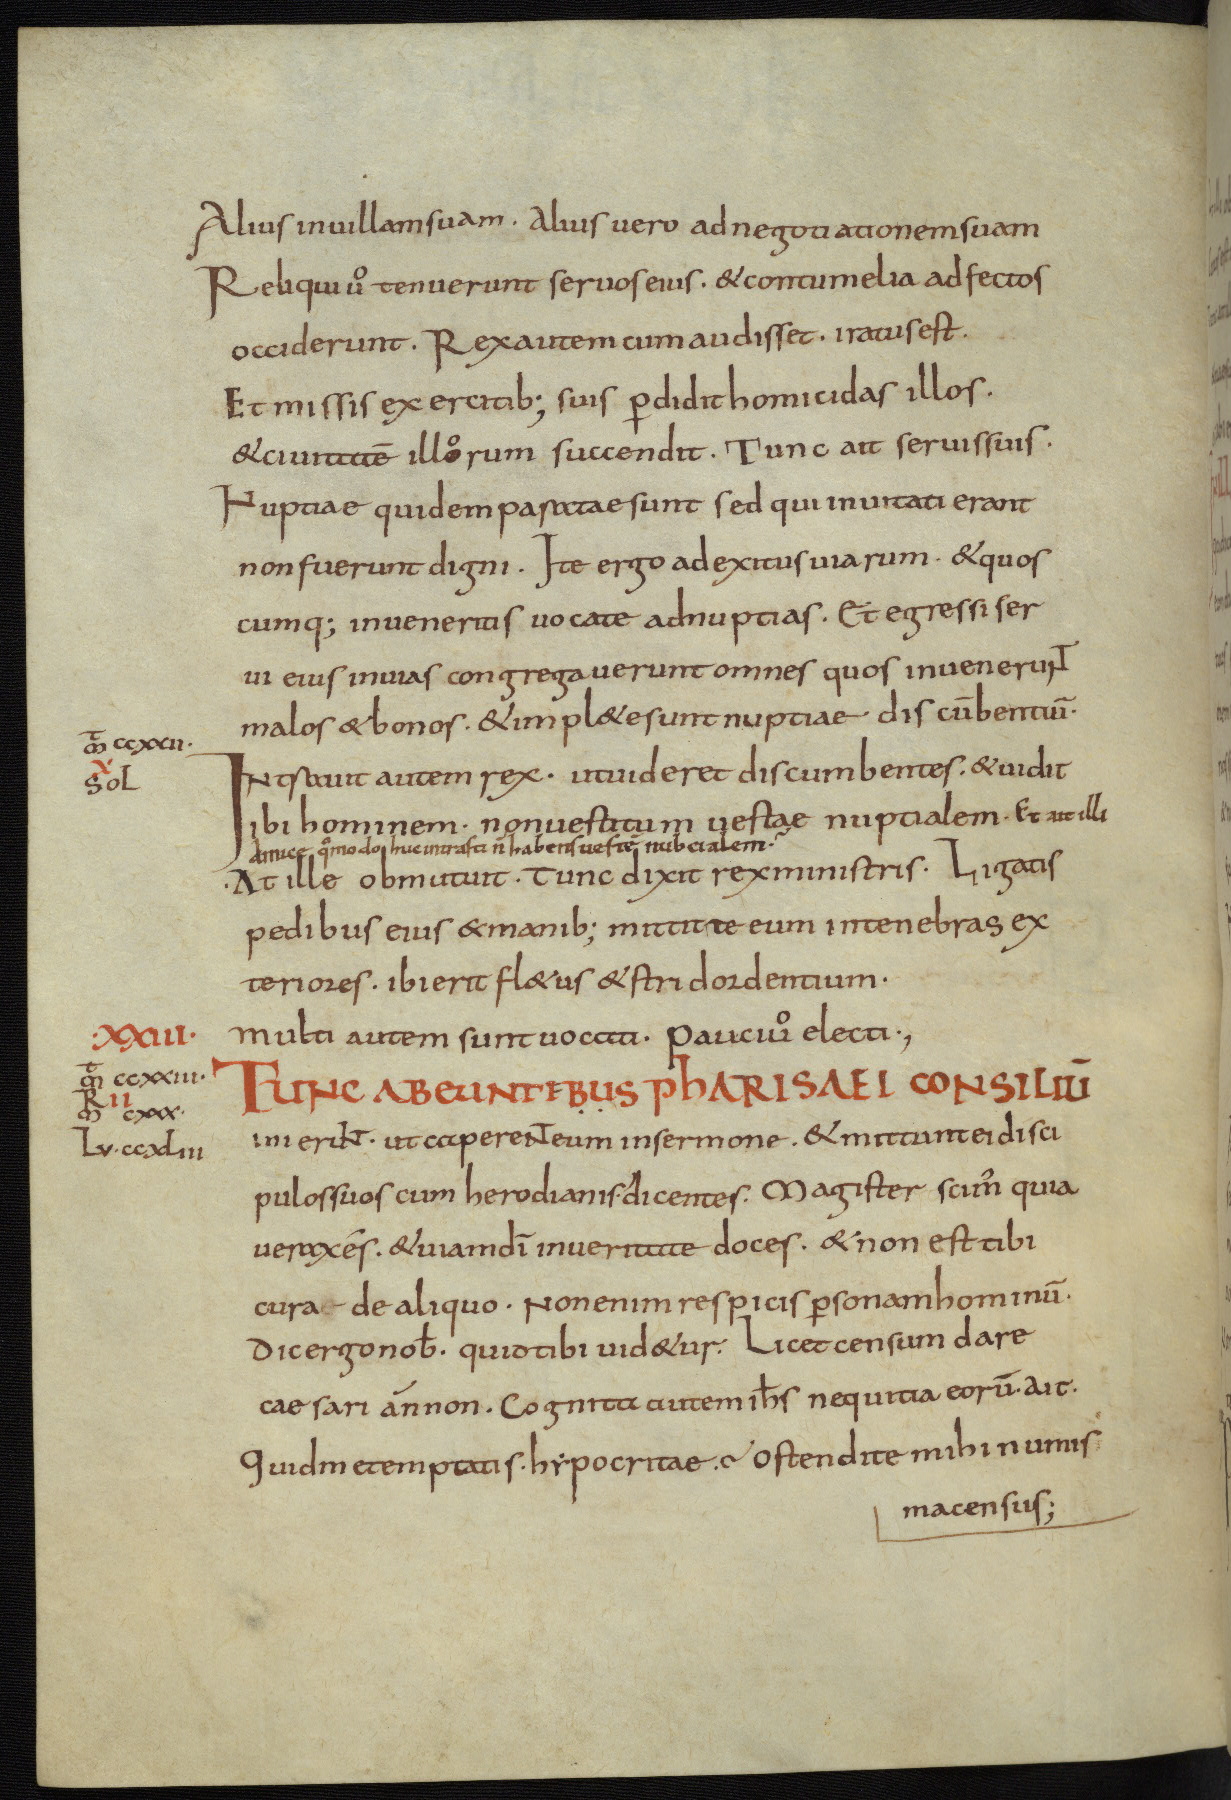 Alius inuillamsuam. Alius uero adnegotiationemsuam
Reliqui ůo tenuerunt seruoseius. &contumelia adfectos
occiderunt. Rexautemcumaudisset. iratusest.
Et missis exercitib; suis p̱didithomicidas illos.
&ciuitatē illorum succendit. Tunc ait seruissuis.
Nuptiae quidemparataesunt sed qui inuitati erant
nonfuerunt digni. Ite ergo adexitusuiarum. &quos
cumq; inueneritis uocate adnuptias. Et egressi ser
ui eius inuias congregauerunt omnes quos inuenerunt
malos &bonos. &impl&esunt nuptiae discūbentiū.
m̄t ccxxii.
x
Sol
Intrauit autem rex. utuideret discumbentes. &uidit
ibi hominem. nonuestitum uestae nuptialem. Et ait illi
Amice q̊modo huc intrasti n̄ habens uestē nubcialem.
.At ille obmutuit. Tunc dixit rexministris. Ligatis
pedibus eius &manib; mittite eum intenebras ex
teriores. ibierit fl&us &stridordentium.
.XXIII. multi autem sunt uocati. Pauciůo electi.,
m̄t ccxxiii.
RII
m̄ cxxx.
Lu. ccxLiii
TUNC ABEUNTEBUS PhARISAEI CONSILIŪ
inierunt. ut caperenteum insermone. &mittuntei disci
pulossuos cum herodianis. dicentes. Magister scim̉ quia
ueraxēs. &uiamdī inueritate doces. & non est tibi
curae de aliquo. Nonenim respicis p̱sonamhominū.
Dicergonob̄. quidtibi uid&ur. Licet censum dare
caesari ānnon. Cognita autemih̄s nequitia eorū. Ait.
Quidmetemptatis. hẏpocritae. Ostendite mihi numis
macensus;